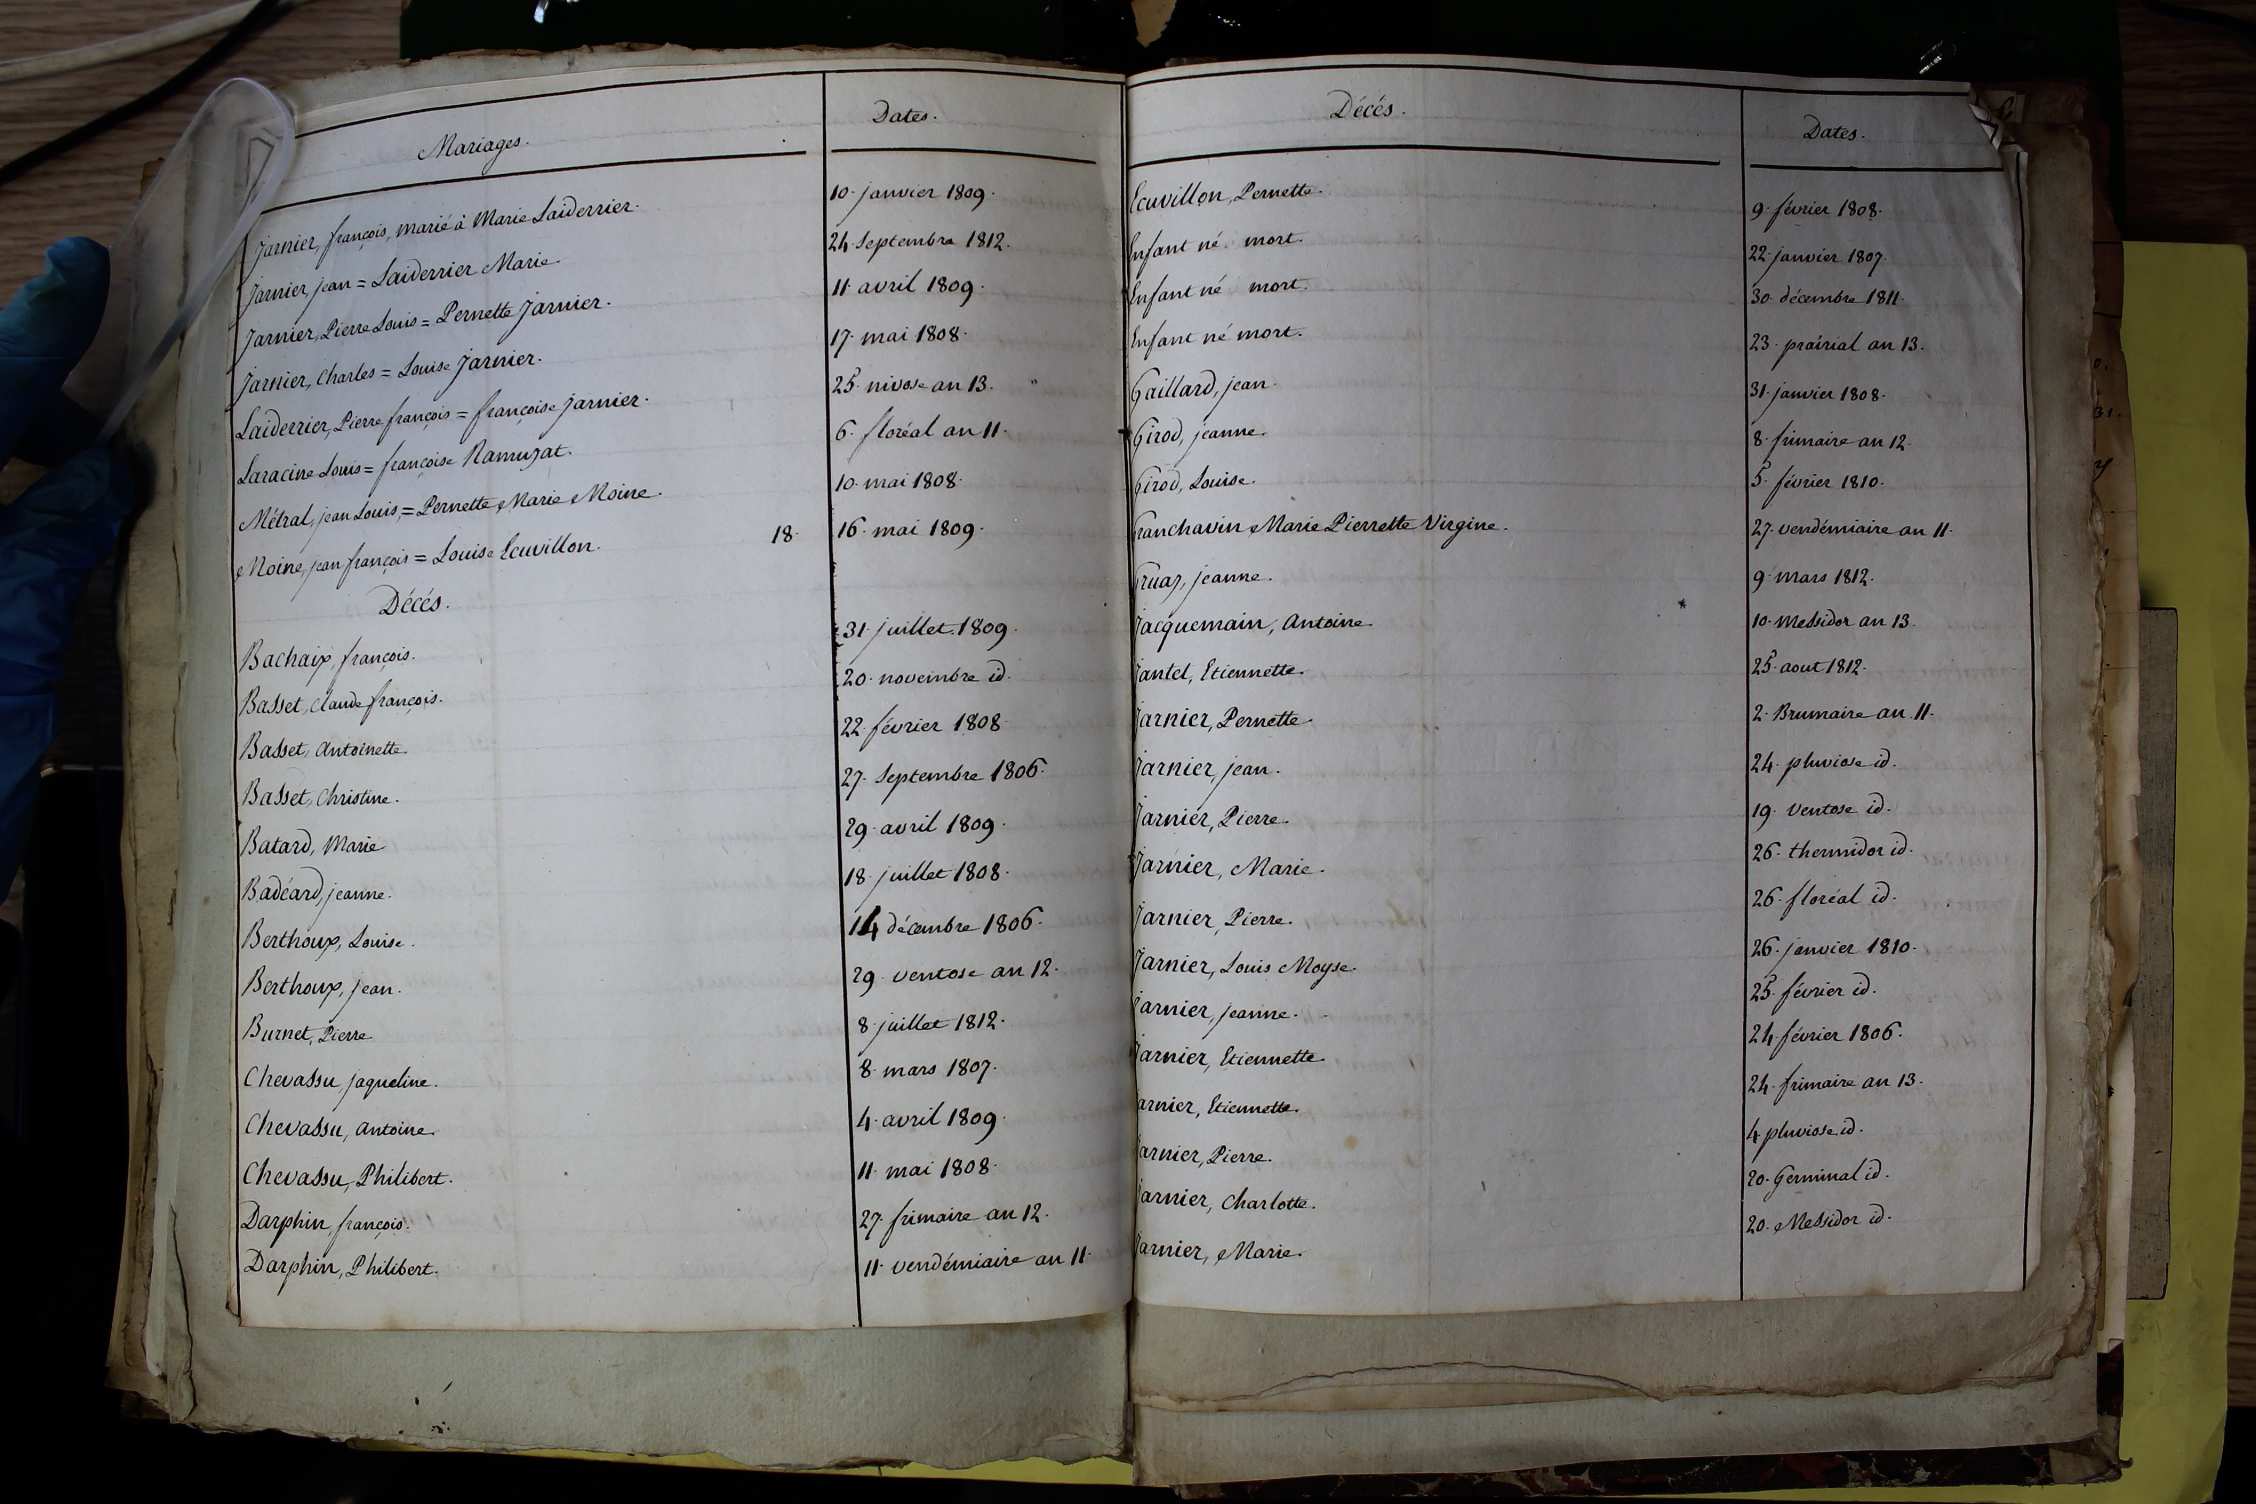 Mariages. Dates.
Jarnier, françois, marié à Marie Laiderrier. 10. janvier 1809.
Jarnier, jean = Laiderrier Marie. 24. Septembre 1812.
Jarnier, Pierre Louis = Pernette Jarnier. 11. avril 1809.
Jarnier, Charles = Louise Jarnier. 17. mai 1808.
Laiderrier, Pierre françois = françoise Jarnier. 25. nivose an 13.
Laracine Louis = françoise Ramuzat. 6. floréal an 11.
Métral, jean Louis, = Pernette Marie Moine. 10. mai 1808.
Moine, jean françois = Louise Ecuvillon. 18. 16. mai 1809.
Décés.
Bachaix, françois. 31. juillet. 1809.
Basset, Claude françois. 20. novembre id.
Basset, Antoinette. 22. février 1808.
Basset, Christine. 27. Septembre 1806.
Batard, Marie 29. avril 1809.
Badéard, jeanne. 18. juillet 1808.
Berthoux, Louise. 14 décembre 1806.
Berthoux, jean. 29. ventose an 12.
Burnet, Pierre 8. juillet 1812.
Chevassu, jaqueline. 8. mars 1807.
Chevassu, Antoine. 4. avril 1809.
Chevassu, Philibert. 11. mai 1808.
Darphin, françois. 27. frimaire an 12.
Darphin, Philibert. 11. vendémiaire an 11.
Décés. Dates.
Ecuvillon, Pernette. 9. février 1808.
Enfant né mort. 22. janvier 1807.
Enfant né mort. 30. décembre 1811.
Enfant né mort. 23. prairial an 13.
Gaillard, jean. 31. janvier 1808.
Girod, jeanne. 8. frimaire an 12.
Girod, Louise. 5. février 1810.
Granchavin Marie Pierrette Virgine. 27. vendémiaire an 11.
Gruaz, jeanne. 9. mars 1812.
Jacquemain, Antoine. 10. Messidor an 13.
Jantet, Etiennette. 25. aout 1812.
Jarnier, Pernette. 2. Brumaire an 11.
Jarnier, jean. 24. pluviose id.
Jarnier, Pierre. 19. Ventose id.
Jarnier, Marie. 26. thermidor id.
Jarnier, Pierre. 26. floréal id.
Jarnier, Louis Moyse. 26. janvier 1810.
Jarnier, jeanne. 25. février id.
Jarnier, Etiennette. 24. février 1806.
Jarnier, Etiennette. 24. frimaire an 13.
Jarnier, Pierre. 4. pluviose id.
Jarnier, Charlotte. 20. Germinal id.
Jarnier, Marie. 20. Messidor id.